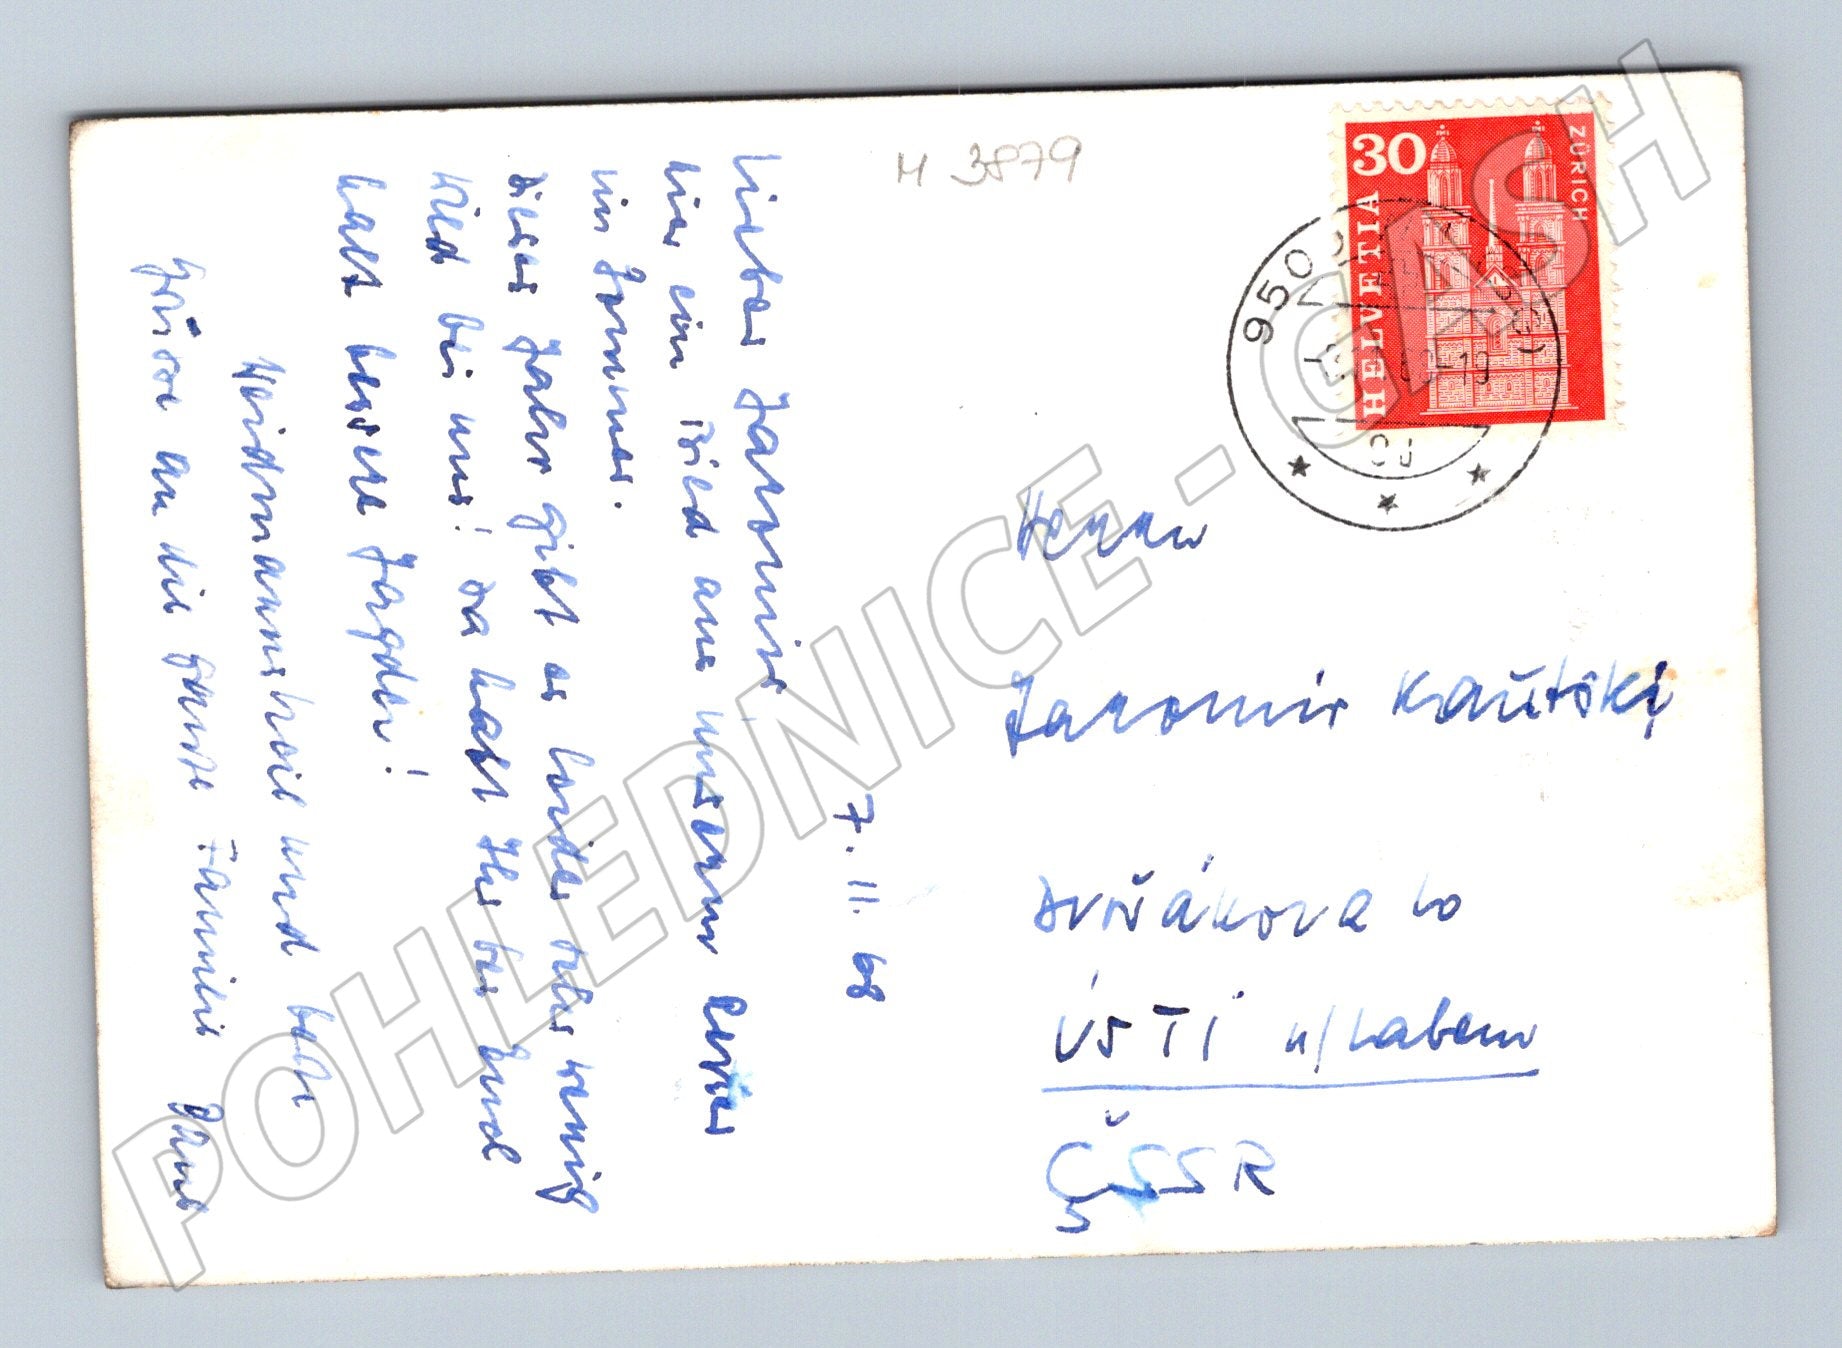 M 3879
30
HELVETIA
ZÜRICH
950
7. 11. 68
Lieber Jaromir,
hier ein Bild aus unserem Revier
im Sommer.
Dieses Jahr gibt es leider sehr wenig
Wild bei uns! Da habt Ihr bei Euch
halt bessere Jagden!
Weidmannsheil und
Grüsse an die ganze Familie
Herrn
Jaromir Kautski
Dvořákova 10
ÚSTÍ n/Labem
ČSSR
POHLEDNICE - GASH